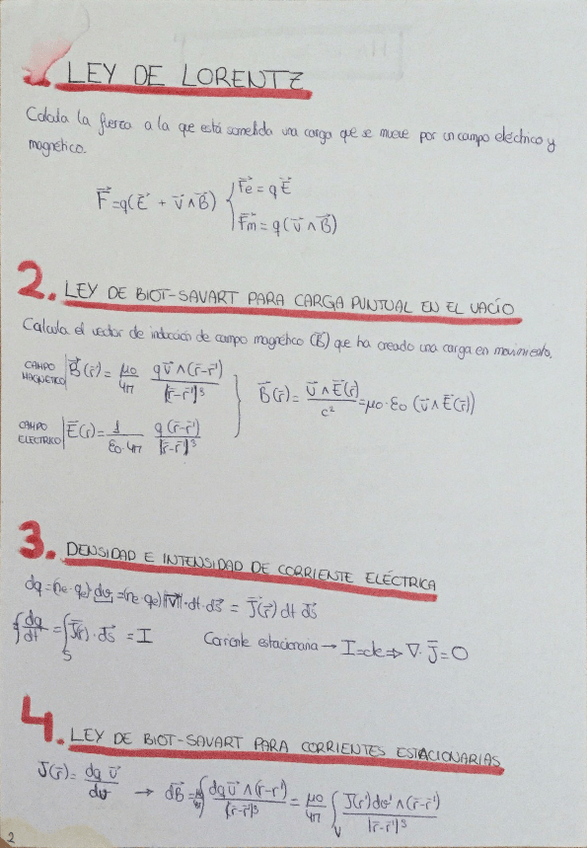 LEY DE LORENTZ
Calcula la fuerza a la que está sometida una carga que se mueve por un campo eléctrico y
magnético.
F⃗ = q(E⃗ + v⃗ ∧ B⃗) { F⃗e = q E⃗
F⃗m = q(v⃗ ∧ B⃗)
2. LEY DE BIOT-SAVART PARA CARGA PUNTUAL EN EL VACÍO
Calcula el vector de inducción de campo magnético (B⃗) que ha creado una carga en movimiento.
CAMPO MAGNÉTICO | B⃗(r̄) = μ0/4π q v̄ ∧ (r̄-r̄')/|r̄-r̄'|³
CAMPO ELÉCTRICO | E⃗(r̄) = 1/ε0·4π q(r̄-r̄')/|r̄-r̄'|³
} B̄(r̄) = v̄ ∧ Ē(r̄)/c² = μ0·ε0 (v̄ ∧ Ē(r̄))
3. DENSIDAD E INTENSIDAD DE CORRIENTE ELÉCTRICA
dq = (ne·qe) dv = (ne·qe)|v̄|·dt·ds̄ = J̄(r̄) dt ds̄
∮ dq/dt = ∫s J̄(r̄)·ds̄ = I Corriente estacionaria → I = cte ⇒ ∇·J̄ = 0
4. LEY DE BIOT-SAVART PARA CORRIENTES ESTACIONARIAS
J(r̄) = dq v̄/dv → dB̄ = ∫ dq v̄ ∧ (r̄-r')/|r̄-r'|³ = μ0/4π ∫v J(r') dv' ∧ (r̄-r')/|r̄-r'|³
2